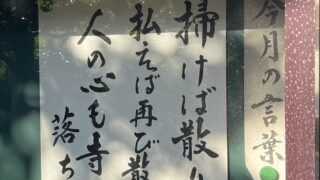 今月の言葉
掃けば散り
払えば再び散
人の心も寺
落ち